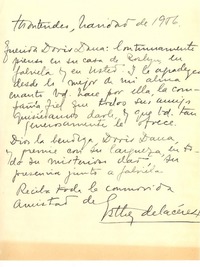 Montevideo, Navidad de 1956
Querida Doris Dana: Continuamente
pienso en su casa de Roslyn, en
Gabriela y en Usted. Y le agradezco
desde lo mejor de mi alma
cuanto Ud. hace por ella, la com-
pañía fiel que todos sus amigos
quisiéramos darle, y que Ud. tan
generosamente le ofrece.
Dios la bendiga, Doris Dana,
y premie con su largueza, en to-
do su misterioso dar, su
presencia junto a Gabriela.
Reciba toda la conmovida
amistad de
Esther de Cáceres